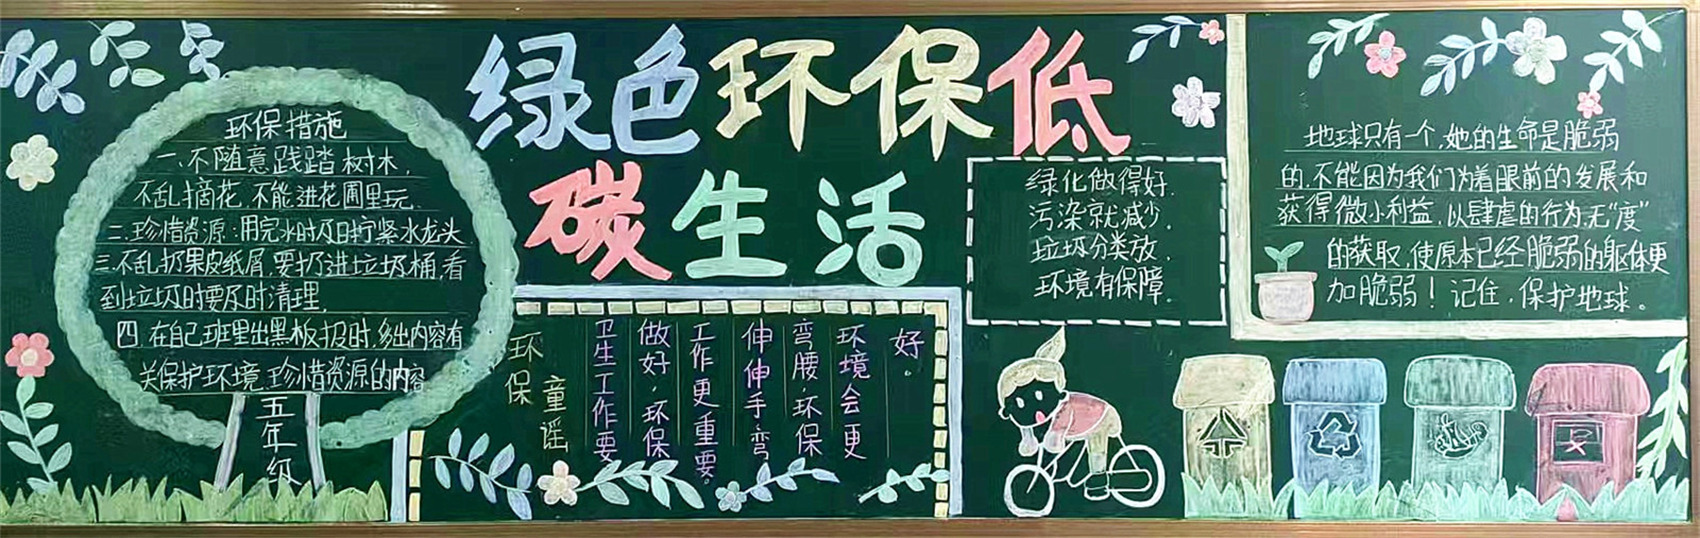 绿色环保低
碳生活
环保措施
一、不随意践踏树木，
不乱摘花，不能进花圃里玩.
二.珍惜资源：用完水时及时拧紧水龙头
三.不乱扔果皮纸屑，要扔进垃圾桶，看
到垃圾时要及时清理.
四.在自己班里出黑板报时，多出内容有
关保护环境、珍惜资源的内容
五年级
环保
童谣
卫生工作要
做好，环保
工作更重要。
伸伸手弯
弯腰，环保
环境会更
好。
绿化做得好.
污染就减少.
垃圾分类放.
环境有保障.
地球只有一个，她的生命是脆弱
的，不能因为我们为着眼前的发展和
获得微小利益，以肆虐的行为，无“度”
的获取，使原本已经脆弱的躯体更
加脆弱！记住，保护地球。